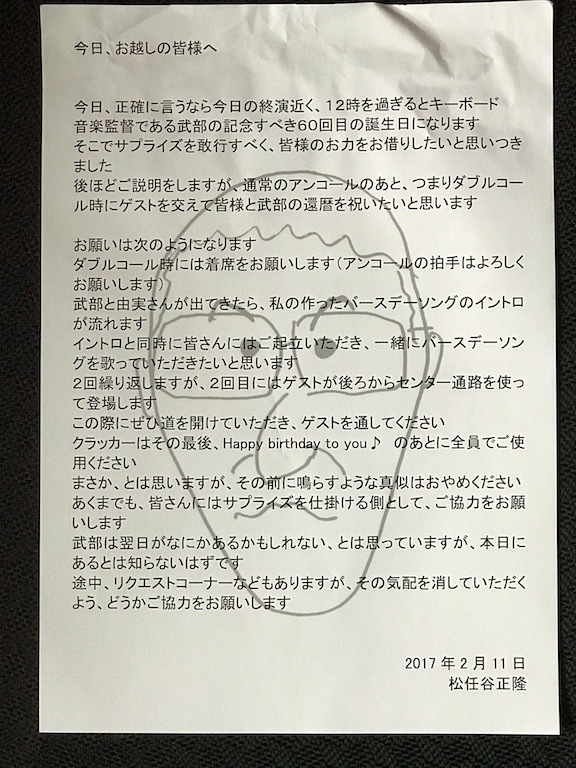 今日、お越しの皆様へ
今日、正確に言うなら今日の終演近く、12時を過ぎるとキーボード
音楽監督である武部の記念すべき60回目の誕生日になります
そこでサプライズを敢行すべく、皆様のお力をお借りしたいと思いつき
ました
後ほどご説明をしますが、通常のアンコールのあと、つまりダブルコー
ル時にゲストを交えて皆様と武部の還暦を祝いたいと思います
お願いは次のようになります
ダブルコール時には着席をお願いします(アンコールの拍手はよろしく
お願いします)
武部と由実さんが出てきたら、私の作ったバースデーソングのイントロ
が流れます
イントロと同時に皆さんにはご起立いただき、一緒にバースデーソン
グを歌っていただきたいと思います
2回繰り返しますが、2回目にはゲストが後ろからセンター通路を使っ
て登場します
この際にぜひ道を開けていただき、ゲストを通してください
クラッカーはその最後、Happy birthday to you♪ のあとに全員でご使
用ください
まさか、とは思いますが、その前に鳴らすような真似はおやめください
あくまでも、皆さんにはサプライズを仕掛ける側として、ご協力をお願
いします
武部は翌日がなにかあるかもしれない、とは思っていますが、本日に
あるとは知らないはずです
途中、リクエストコーナーなどもありますが、その気配を消していただく
よう、どうかご協力をお願いします
2017年2月11日
松任谷正隆